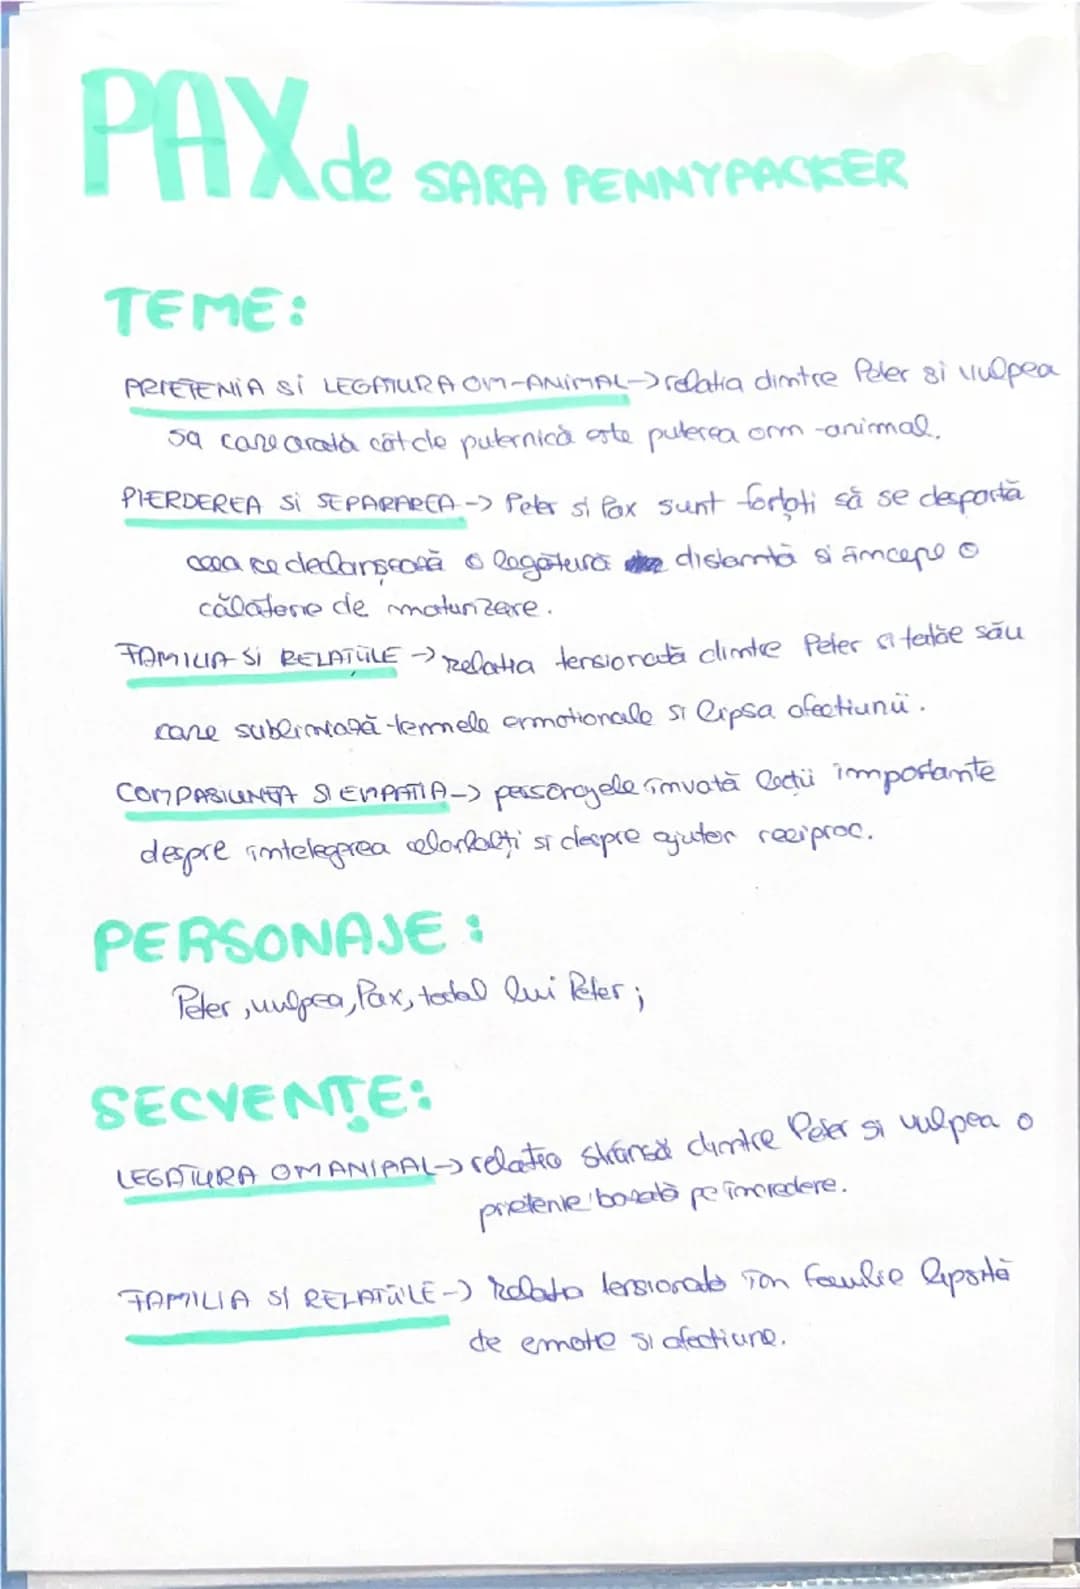 PAX de SARA PENNYPACKER
TEME:
PRIETENIA SI LEGATURA OM-ANIMAL -> relatia dintre Peter si vulpea
sa care arată cât de puternică este puterea om-animal.
PIERDEREA SI SEPARAREA -> Peter si Pax sunt forțați să se despartă
ceea ce declanșează o legătură distantă si începe o
călătorie de maturizare.
FAMILIA SI RELAȚIILE -> relatia tensionată dintre Peter si tatăe său
care subliniază temele emotionale si lipsa afectiunii.
COMPASIUNEA SI EMPATIA -> personajele învată lectii importante
despre intelegerea celorlalți si despre ajutor reciproc.
PERSONAJE:
Peter, vulpea, Pax, tatal lui Peter;
SECVENȚE:
LEGATURA OMANIMAL -> relatia strânsă dintre Peter si vulpea o
prietenie bazată pe incredere.
FAMILIA SI RELATIILE -> Relatia tensionată în familie lipsită
de emotie si afectiune.